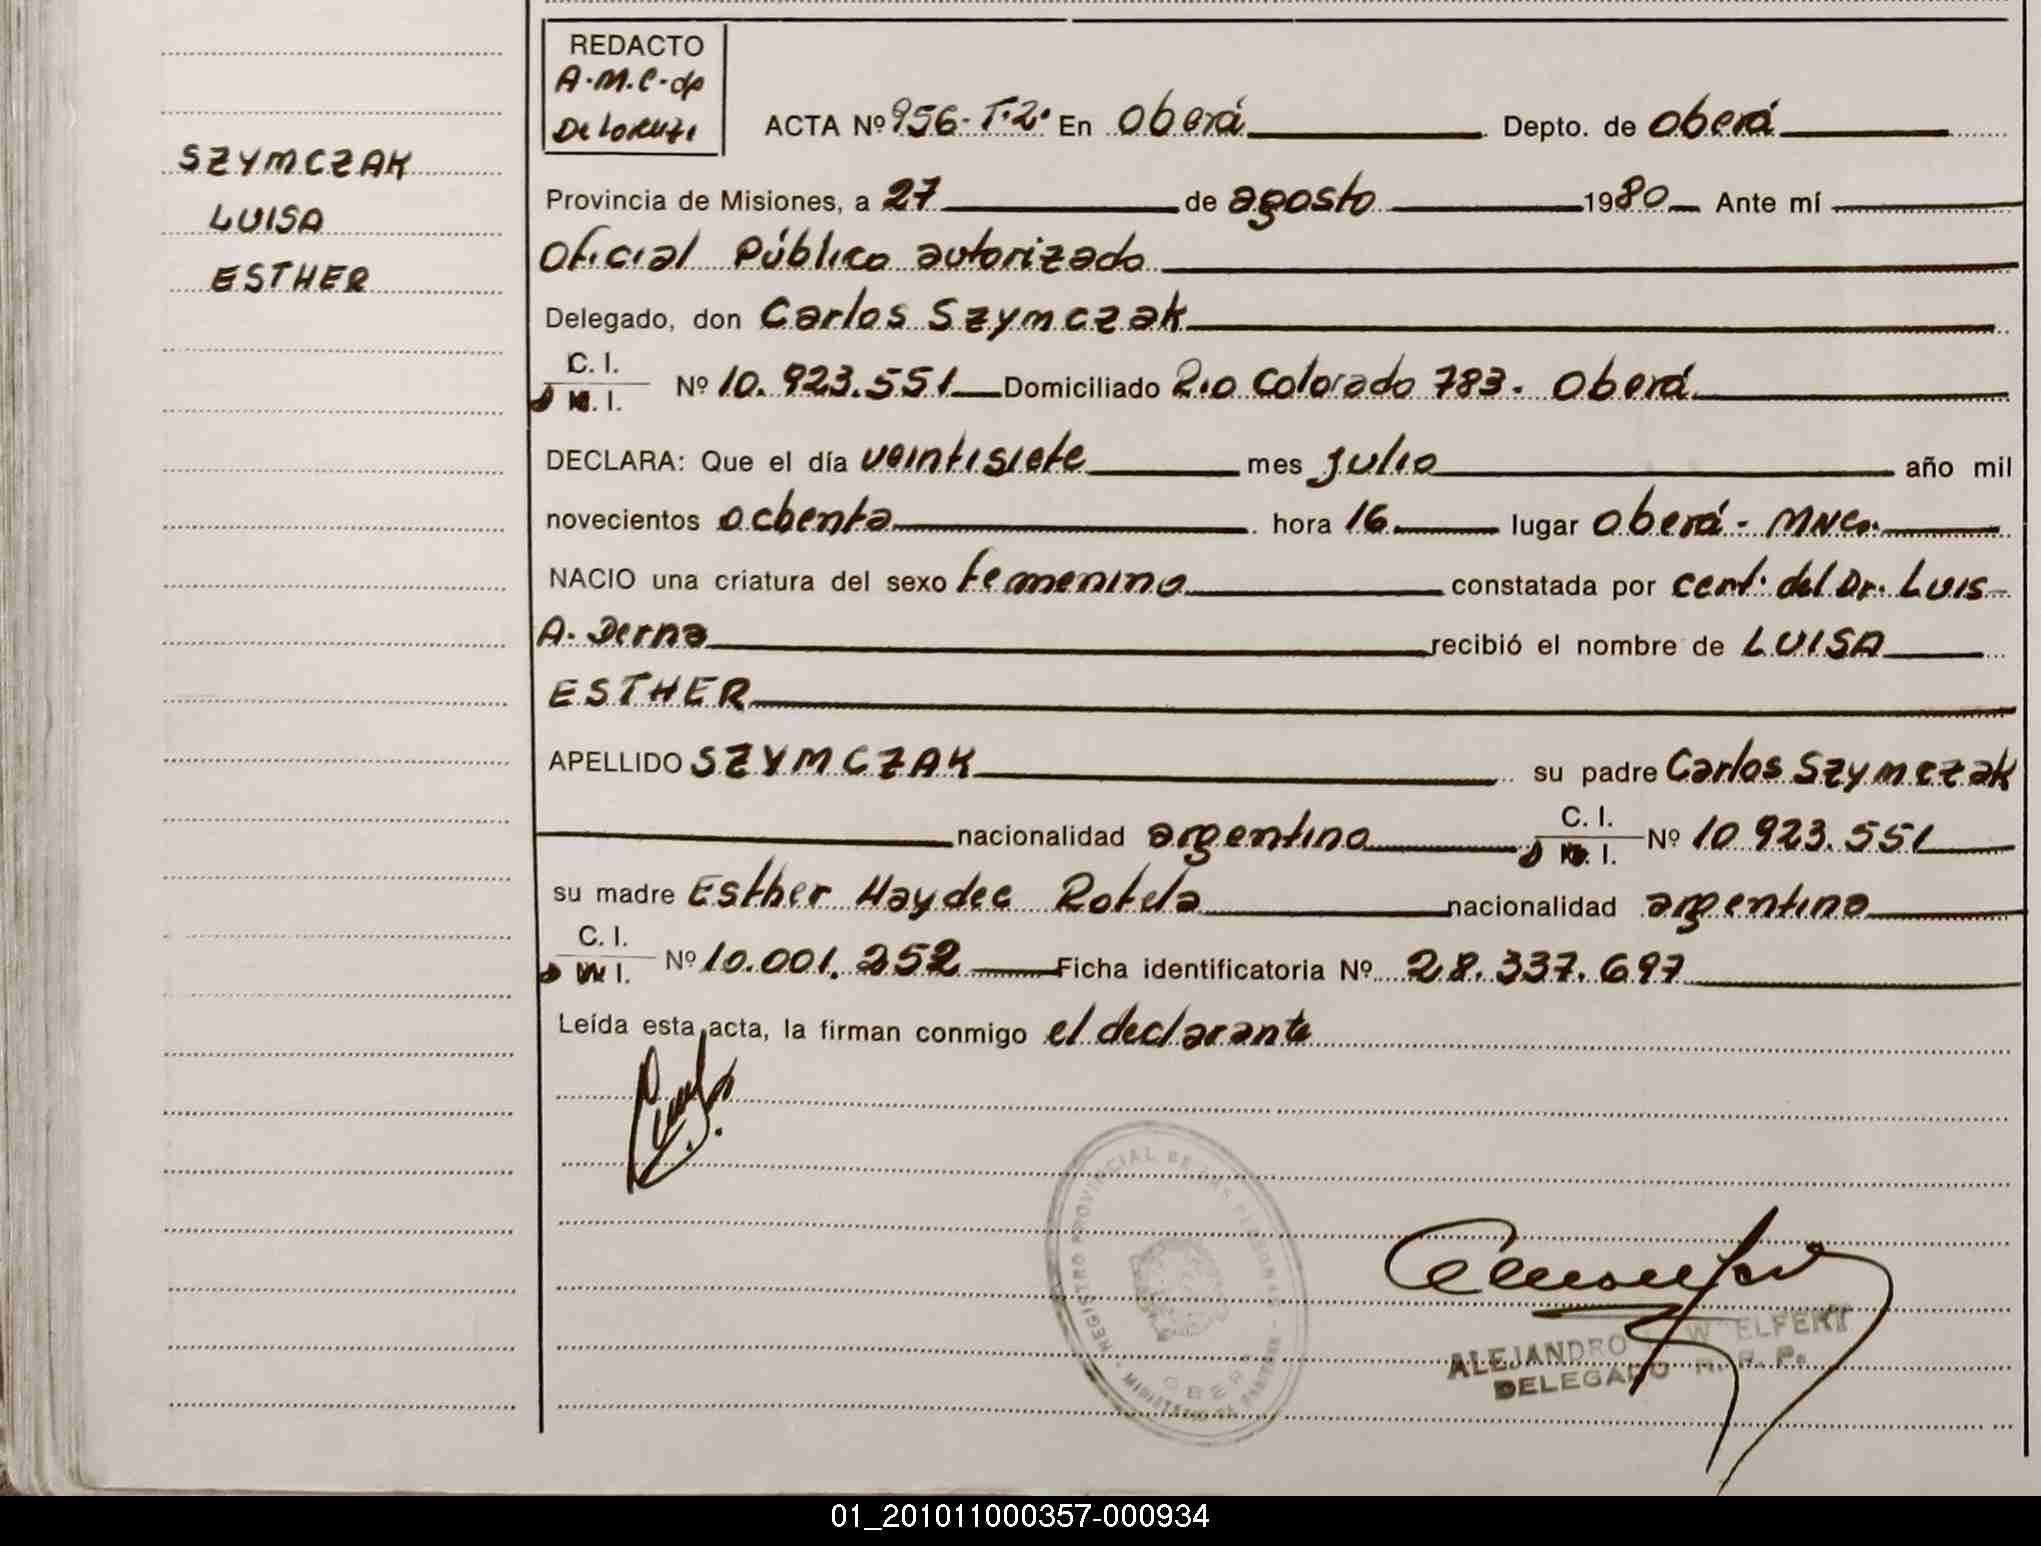 REDACTO
A.M.C. de
De Lorenzi
ACTA Nº 956- T.2. En Oberá Depto. de Oberá
SZYMCZAK
LUISA
ESTHER
Provincia de Misiones, a 27 de agosto 1980 Ante mí
Oficial Público autorizado
Delegado, don Carlos Szymczak
C. I.
D N. I. Nº 10.923.551 Domiciliado Rio Colorado 783. Oberá
DECLARA: Que el día veintisiete mes julio año mil
novecientos ochenta hora 16 lugar Oberá - MNes.
NACIO una criatura del sexo femenino constatada por cert. del Dr. Luis
A. Derna recibió el nombre de LUISA
ESTHER
APELLIDO SZYMCZAK su padre Carlos Szymczak
nacionalidad argentino C. I.
D N. I. Nº 10 923.551
su madre Esther Haydee Rotela nacionalidad argentina
C. I.
D N I. Nº 10.001.252 Ficha identificatoria Nº 28.337.697
Leída esta acta, la firman conmigo el declarante
REGISTRO PROVINCIAL DE LAS PERSONAS
OBERA
ALEJANDRO W ELFERT
DELEGADO R. P. P.
01_201011000357-000934